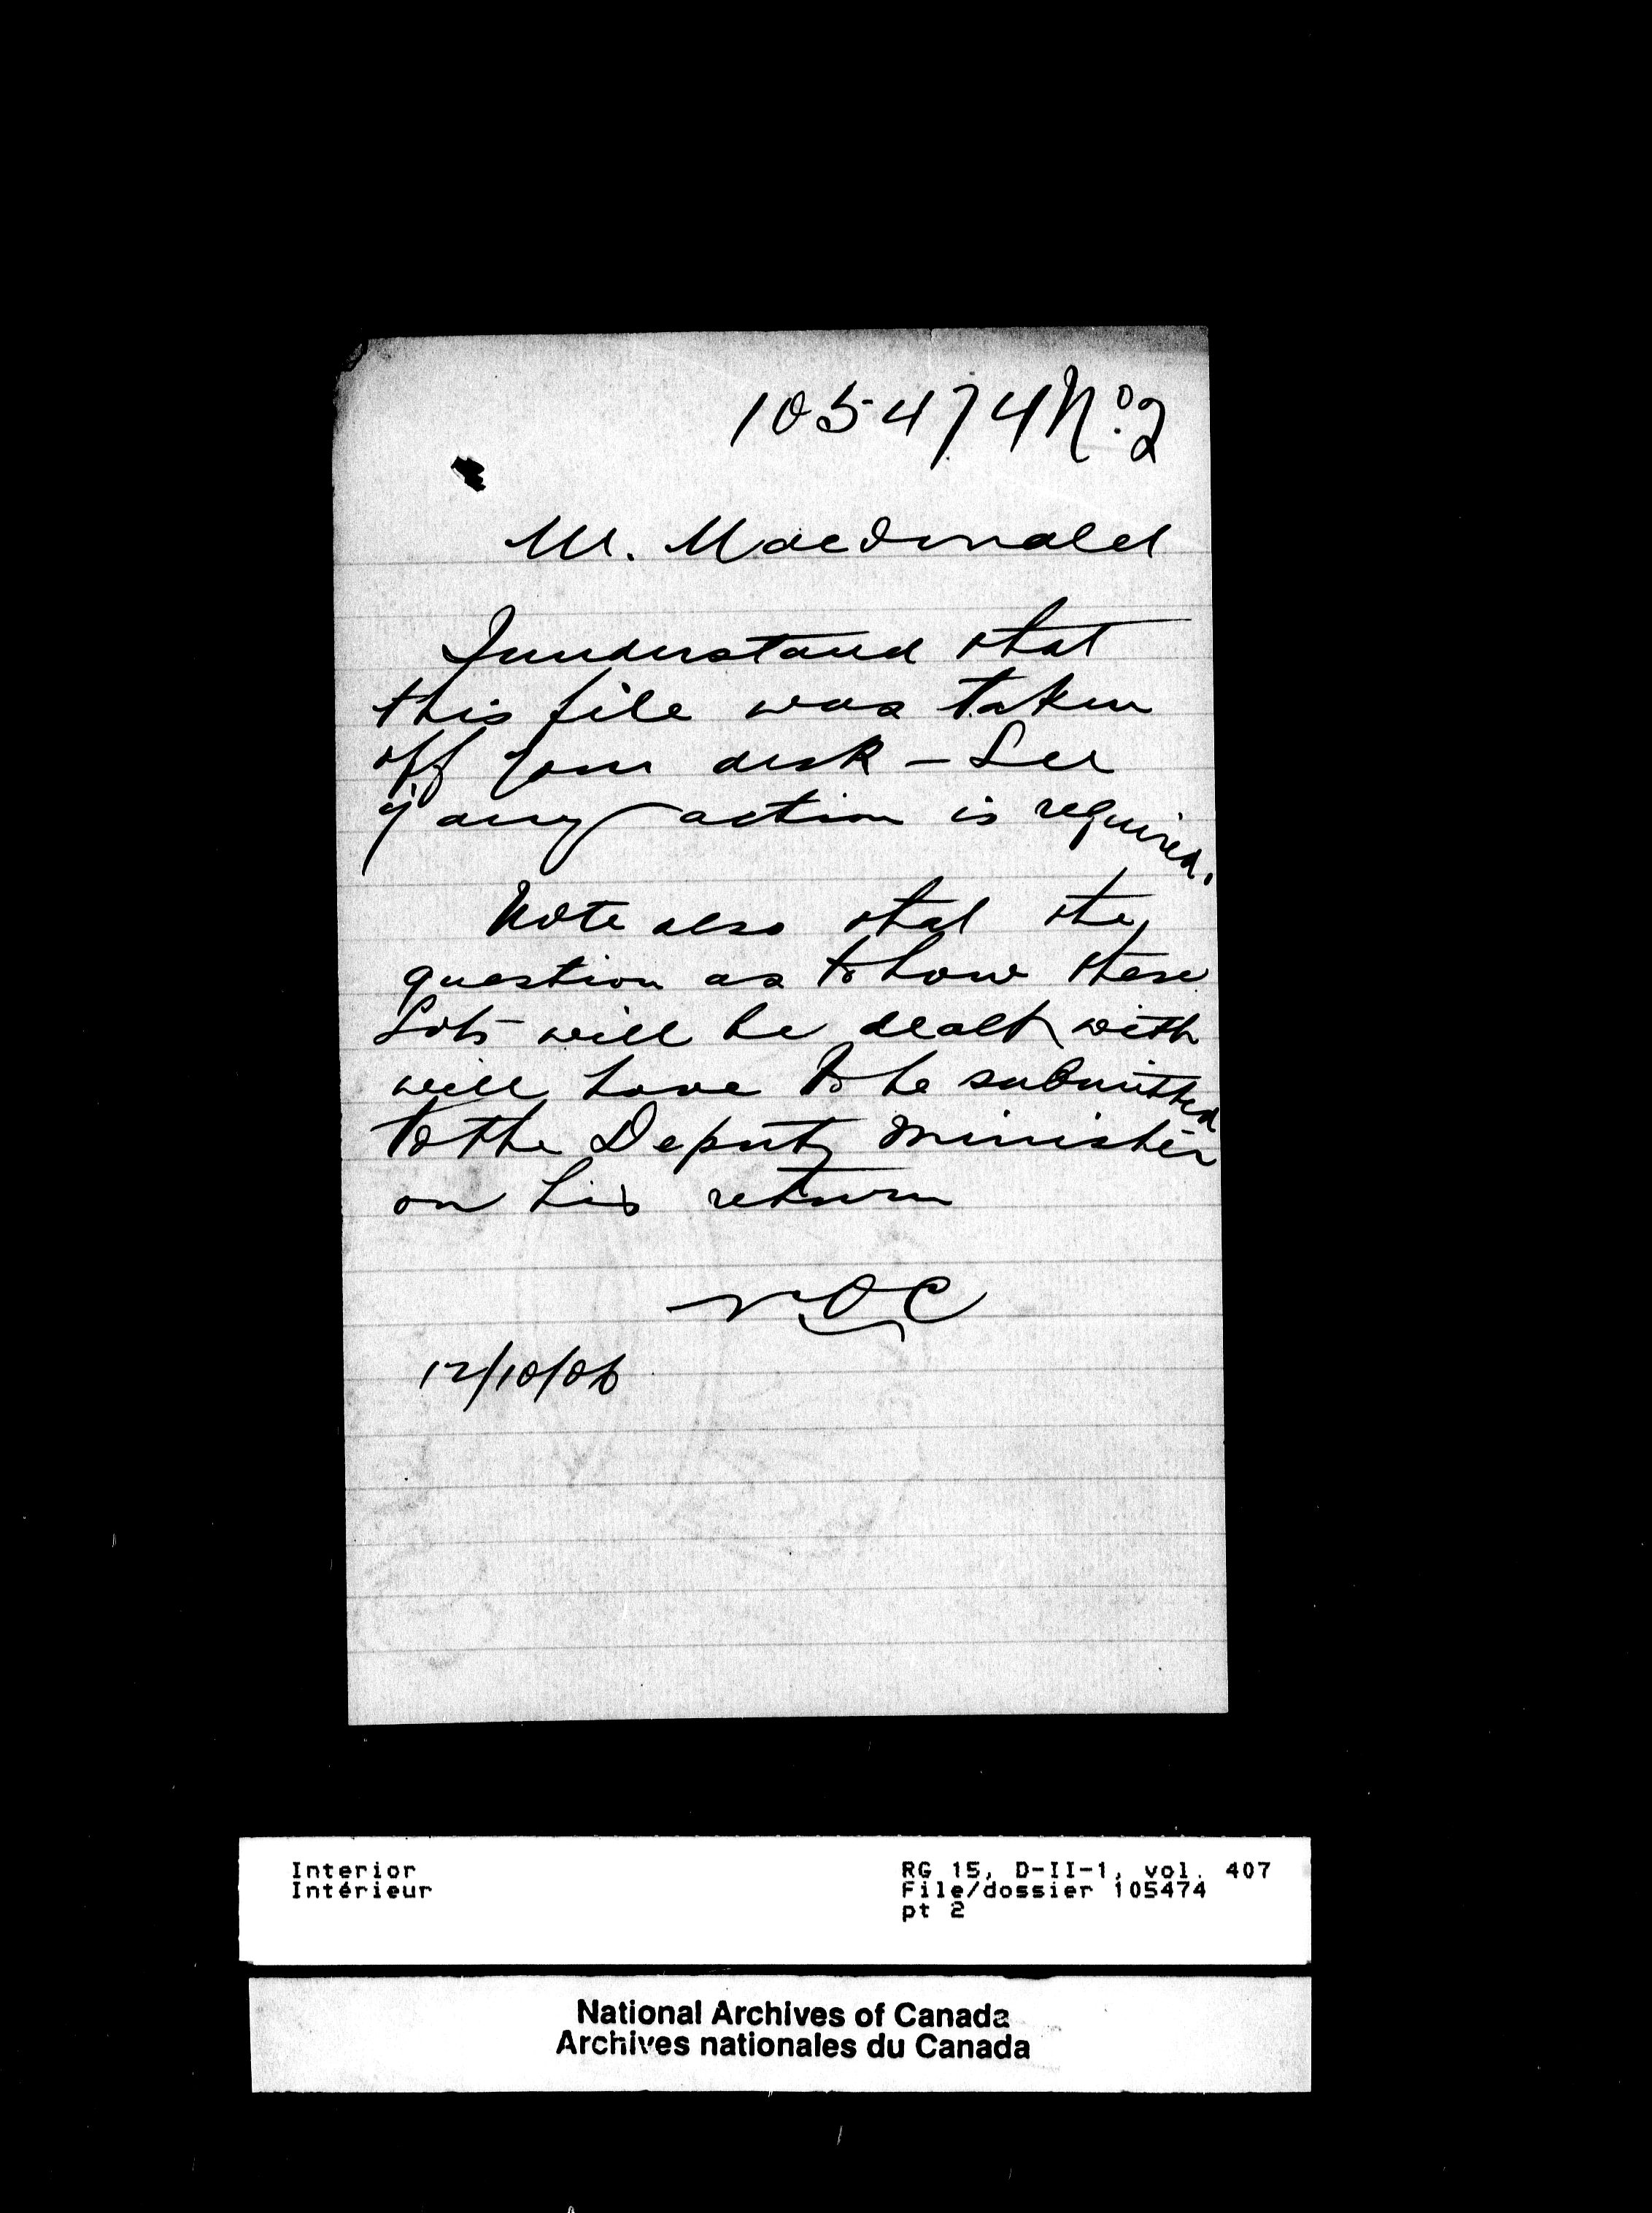 105474 No. 2
Mr. Macdonald
I understand that
this file was taken
off your desk - See
if any action is required.
Note also that the
question as to how these
Lots will be dealt with
will have to be submitted
to the Deputy Minister
on his return
NOC
12/10/06
Interior
Intérieur
RG 15, D-II-1, vol. 407
File/dossier 105474
pt 2
National Archives of Canada
Archives nationales du Canada